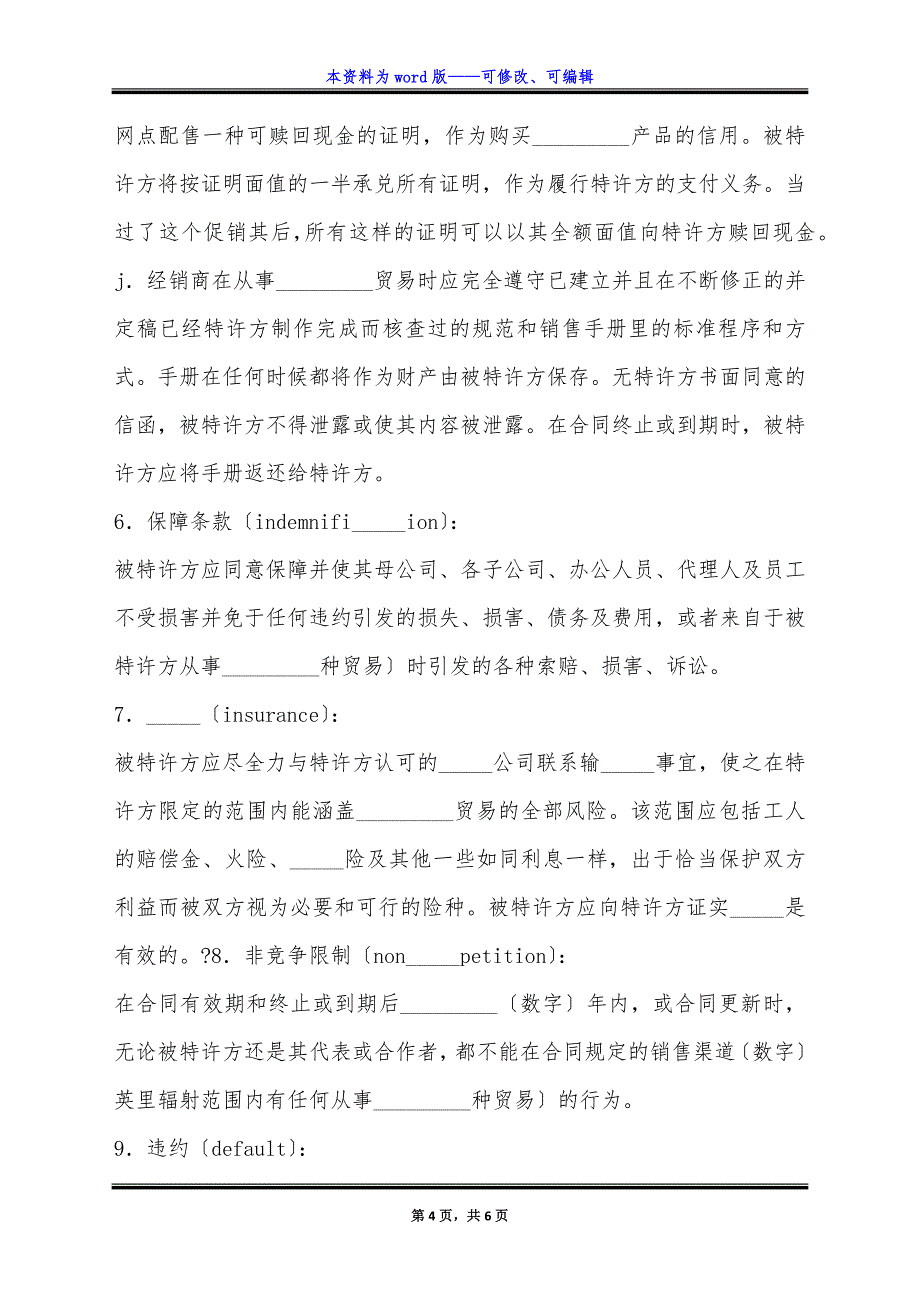 本资料为 word 版——可修改、可编辑
网点配售一种可赎回现金的证明，作为购买_________产品的信用。被特
许方将按证明面值的一半承兑所有证明，作为履行特许方的支付义务。当
过了这个促销其后，所有这样的证明可以以其全额面值向特许方赎回现金。
j．经销商在从事_________贸易时应完全遵守已建立并且在不断修正的并
定稿已经特许方制作完成而核查过的规范和销售手册里的标准程序和方
式。手册在任何时候都将作为财产由被特许方保存。无特许方书面同意的
信函，被特许方不得泄露或使其内容被泄露。在合同终止或到期时，被特
许方应将手册返还给特许方。
6．保障条款〔indemnifi_____ion〕：
被特许方应同意保障并使其母公司、各子公司、办公人员、代理人及员工
不受损害并免于任何违约引发的损失、损害、债务及费用，或者来自于被
特许方从事_________种贸易〕时引发的各种索赔、损害、诉讼。
7．_____〔insurance〕：
被特许方应尽全力与特许方认可的_____公司联系输_____事宜，使之在特
许方限定的范围内能涵盖_________贸易的全部风险。该范围应包括工人
的赔偿金、火险、_____险及其他一些如同利息一样，出于恰当保护双方
利益而被双方视为必要和可行的险种。被特许方应向特许方证实_____是
有效的。?8．非竞争限制〔non_____petition〕：
在合同有效期和终止或到期后_________〔数字〕年内，或合同更新时，
无论被特许方还是其代表或合作者，都不能在合同规定的销售渠道〔数字〕
英里辐射范围内有任何从事_________种贸易〕的行为。
9．违约〔default〕：
第 4 页，共 6 页